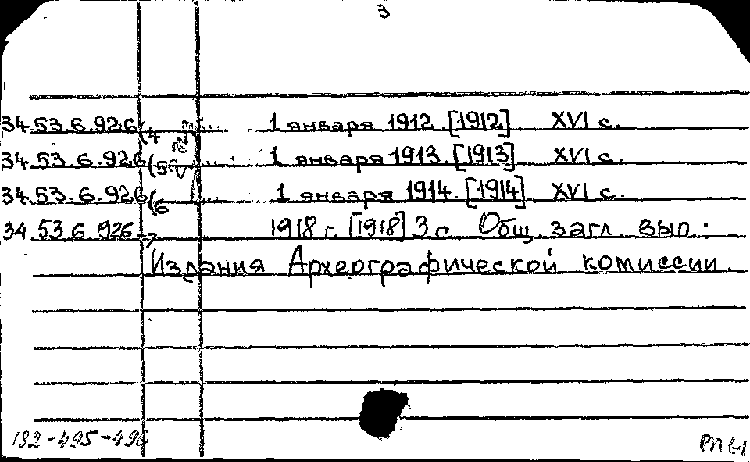 3
34.53.6.926(4 1 января 1912. [1912] XVI с.
34.53.6.926(5 1 января 1913. [1913] XVI с.
34.53.6.926(6 1 января 1914. [1914] XVI с.
34.53.6.926-7 1918 г. [1918] 3 с. Общ. загл. вып.:
Издания Археографической комиссии
192-495-496